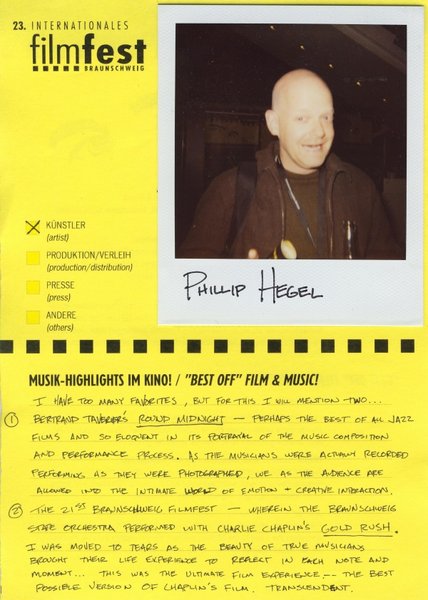 23. INTERNATIONALES
filmfest
BRAUNSCHWEIG
KÜNSTLER
(artist)
PRODUKTION/VERLEIH
(production/distribution)
PRESSE
(press)
ANDERE
(others)
PHILLIP HEGEL
MUSIK-HIGHLIGHTS IM KINO! / "BEST OFF" FILM & MUSIC!
I HAVE TOO MANY FAVORITES, BUT FOR THIS I WILL MENTION TWO...
① BERTRAND TAVERER'S ROUND MIDNIGHT — PERHAPS THE BEST OF ALL JAZZ
FILMS AND SO ELOQUENT IN ITS PORTRAYAL OF THE MUSIC COMPOSITION
AND PERFORMANCE PROCESS. AS THE MUSICIANS WERE ACTUALLY RECORDED
PERFORMING AS THEY WERE PHOTOGRAPHED, WE AS THE AUDIENCE ARE
ALLOWED INTO THE INTIMATE WORLD OF EMOTION + CREATIVE INTERACTION.
② THE 21ST BRAUNSCHWEIG FILMFEST — WHEREIN THE BRAUNSCHWEIG
STATE ORCHESTRA PERFORMED WITH CHARLIE CHAPLIN'S GOLD RUSH.
I WAS MOVED TO TEARS AS THE BEAUTY OF TRUE MUSICIANS
BROUGHT THEIR LIFE EXPERIENCE TO REFLECT IN EACH NOTE AND
MOMENT... THIS WAS THE ULTIMATE FILM EXPERIENCE — THE BEST
POSSIBLE VERSION OF CHAPLIN'S FILM. TRANSCENDENT.